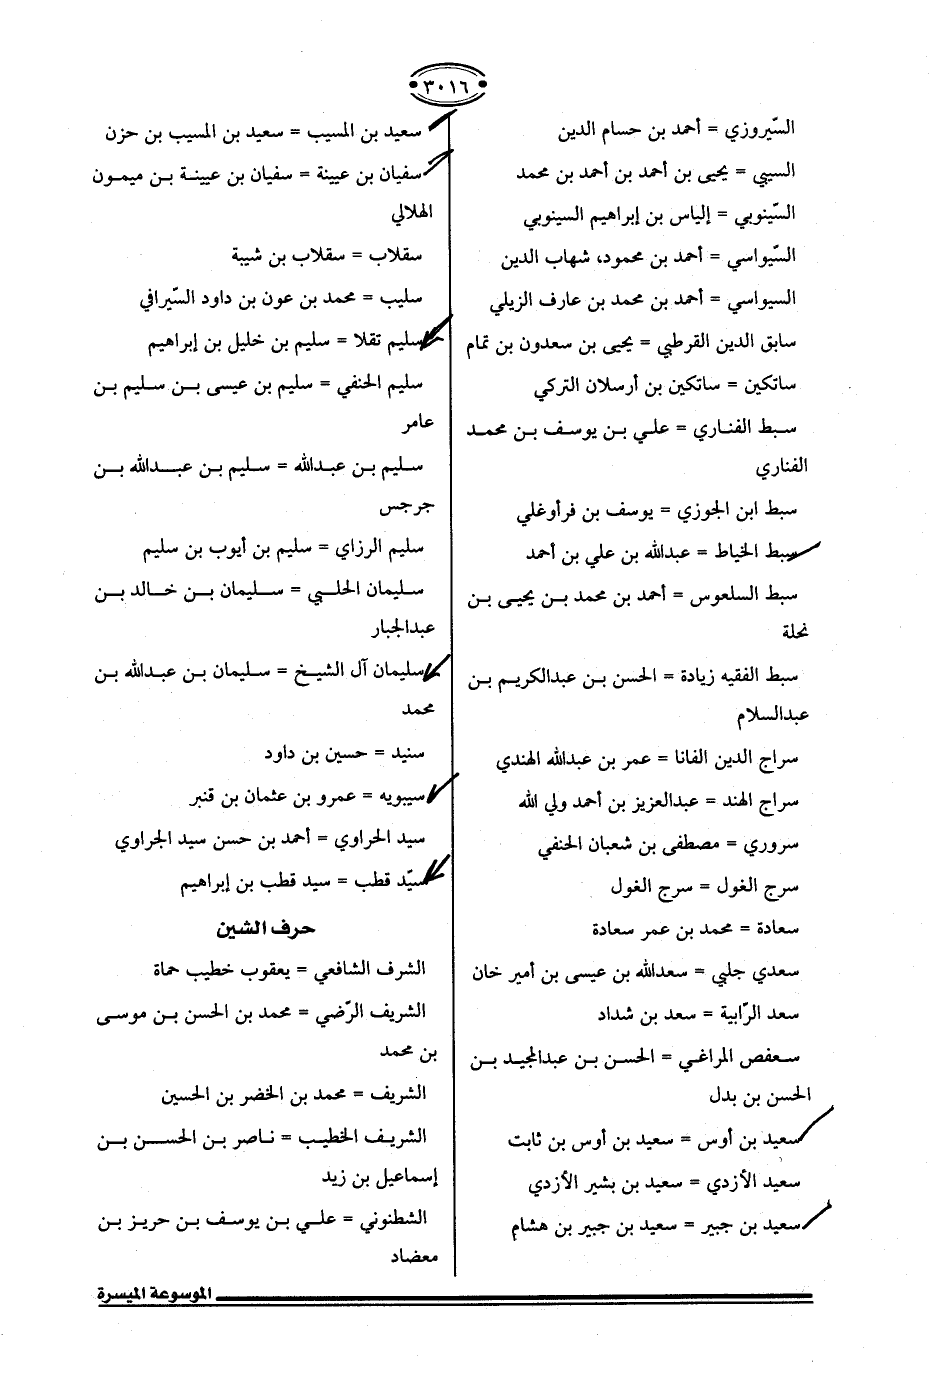 ٣٠١٦
السّيروزي = أحمد بن حسام الدين
السيبي = يحيى بن أحمد بن أحمد بن محمد
السّينوبي = إلياس بن إبراهيم السينوبي
السّيواسي = أحمد بن محمود، شهاب الدين
السيواسي = أحمد بن محمد بن عارف الزيلي
سابق الدين القرطبي = يحيى بن سعدون بن تمام
ساتكين = ساتكين بن أرسلان التركي
سبط الفناري = علي بن يوسف بن محمد
الفناري
سبط ابن الجوزي = يوسف بن فرأوغلي
سبط الخياط = عبدالله بن علي بن أحمد
سبط السلعوس = أحمد بن محمد بن يحيى بن
نحلة
سبط الفقيه زيادة = الحسن بن عبدالكريم بن
عبدالسلام
سراج الدين الفانا = عمر بن عبدالله الهندي
سراج الهند = عبدالعزيز بن أحمد ولي الله
سروري = مصطفى بن شعبان الحنفي
سرج الغول = سرج الغول
سعادة = محمد بن عمر سعادة
سعدي جلبي = سعدالله بن عيسى بن أمير خان
سعد الرّابية = سعد بن شداد
سعفص المراغي = الحسن بن عبدالمجيد بن
الحسن بن بدل
سعيد بن أوس = سعيد بن أوس بن ثابت
سعيد الأزدي = سعيد بن بشير الأزدي
سعيد بن جبير = سعيد بن جبير بن هشام
سعيد بن المسيب = سعيد بن المسيب بن حزن
سفيان بن عيينة = سفيان بن عيينة بن ميمون
الهلالي
سقلاب = سقلاب بن شيبة
سليب = محمد بن عون بن داود السّيرافي
سليم تقلا = سليم بن خليل بن إبراهيم
سليم الحنفي = سليم بن عيسى بن سليم بن
عامر
سليم بن عبدالله = سليم بن عبدالله بن
جرجس
سليم الرزاي = سليم بن أيوب بن سليم
سليمان الحلبي = سليمان بن خالد بن
عبدالجبار
سليمان آل الشيخ = سليمان بن عبدالله بن
محمد
سنيد = حسين بن داود
سيبويه = عمرو بن عثمان بن قنبر
سيد الحراوي = أحمد بن حسن سيد الجراوي
سيّد قطب = سيد قطب بن إبراهيم
حرف الشين
الشرف الشافعي = يعقوب خطيب حماة
الشريف الرّضي = محمد بن الحسن بن موسى
بن محمد
الشريف = محمد بن الخضر بن الحسين
الشريف الخطيب = ناصر بن الحسن بن
إسماعيل بن زيد
الشطنوني = علي بن يوسف بن حريز بن
معضاد
الموسوعة الميسرة